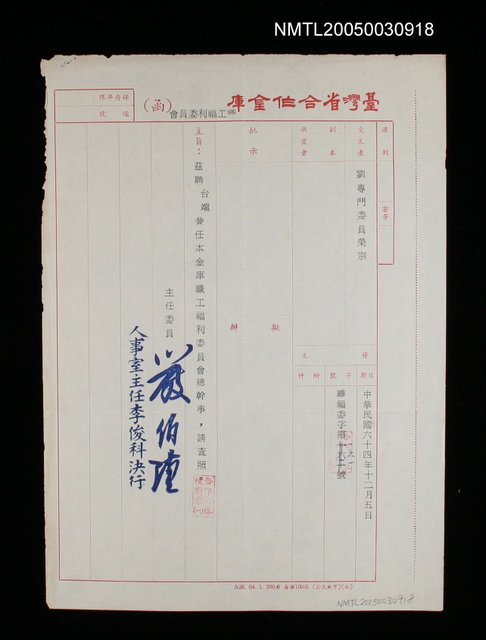 NMTL20050030918
臺灣省合作金庫職工福利委員會（函）
保存年限
檔號
速別
密等
受文者
劉專門委員榮宗
副本
收受者
批示
擬辦
發文
日期
字號
附件
中華民國六十四年十二月五日
職福委字第 號
主旨：茲聘 台端兼任本金庫職工福利委員會總幹事，請查照
主任委員
嚴伯瑾
人事室主任李俊科決行
A26 64. 1. 200
NMTL20050030918